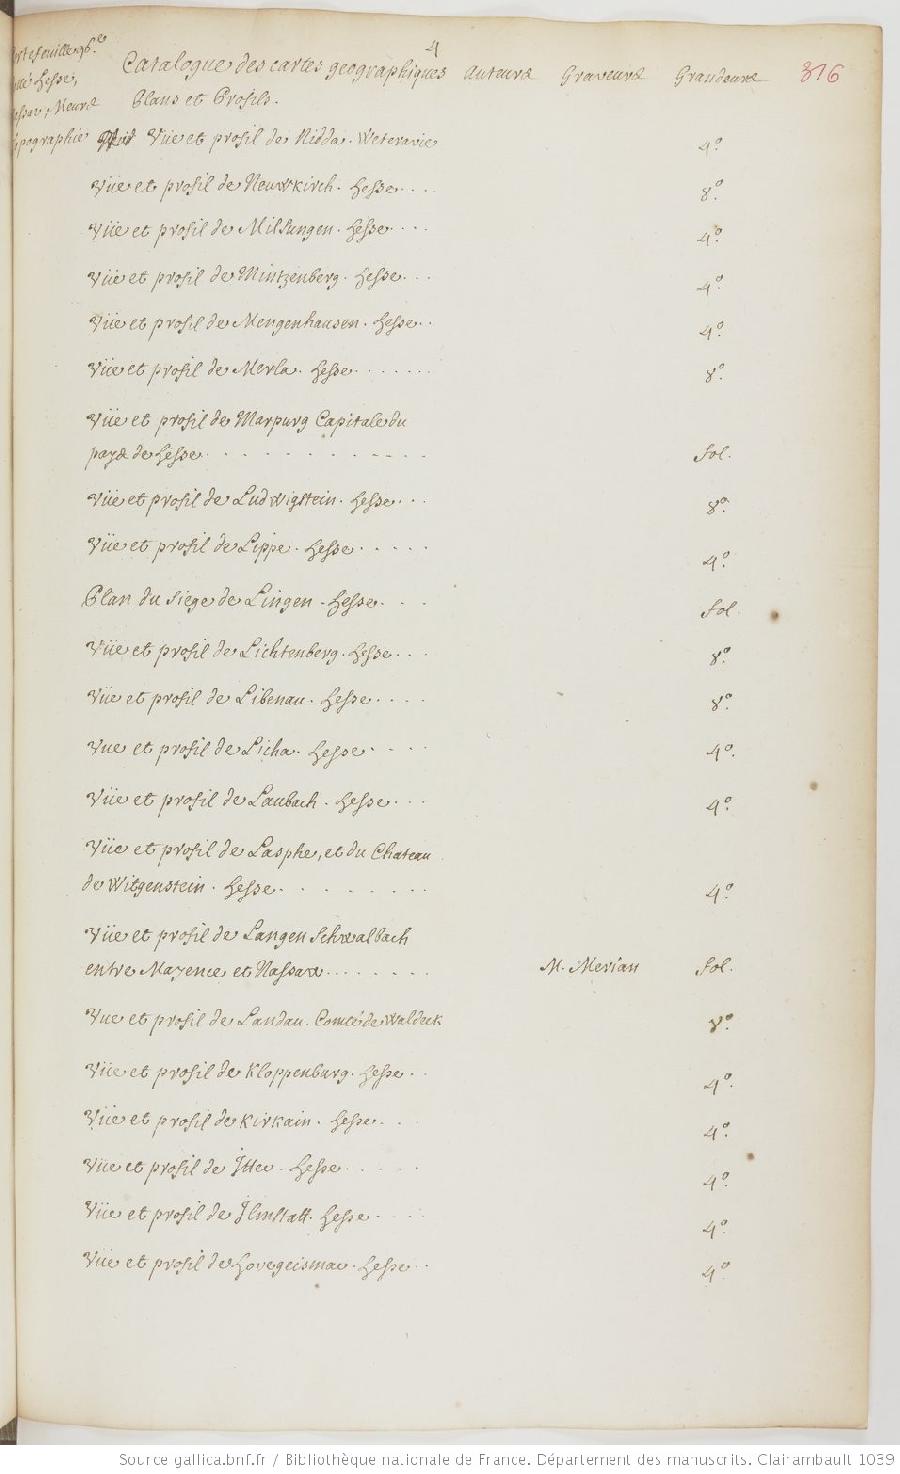 4
Catalogue des cartes geographiques Auteurs Graveurs Grandeurs 316
Plans et Profils.
Hesse,
Vüe et profil de Nidda. Weteravie 4°.
Vüe et profil de Neuwkirch. Hesse.... 8°.
Vüe et profil de Milsungen. Hesse.... 4°.
Vüe et profil de Mintzenberg. Hesse... 4°.
Vüe et profil de Mengenhausen. Hesse.. 4°.
Vüe et profil de Merla. Hesse....... 8°.
Vüe et profil de Marpurg Capitale du
pays de Hesse. . . . . . . . . . . fol.
Vüe et profil de Ludwigstein. Hesse... 8°.
Vüe et profil de Lippe. Hesse..... 4°.
Plan du siege de Lingen. Hesse... fol
Vüe et profil de Lichtenberg. Hesse... 8°.
Vüe et profil de Libenau. Hesse.... 8°.
Vue et profil de Licha. Hesse.... 4°.
Vüe et profil de Laubach. Hesse... 4°.
Vüe et profil de Lasphe, et du Chateau
de Witgenstein. Hesse. . . . . . . . 4°.
Vüe et profil de Langen Schwalbach
entre Mayence et Nassau........ M. Merian fol.
Vue et profil de Landau. Comté de Waldeck 8°.
Vüe et profil de Kloppenburg. Hesse.. 4°.
Vüe et profil de Kirkain. Hesse... 4°.
Vüe et profil de Itter. Hesse..... 4°.
Vüe et profil de Ilmstatt. Hesse.... 4°.
Vüe et profil de Hovegeismar. Hesse.. 4°.
Source gallica.bnf.fr / Bibliothèque nationale de France. Département des manuscrits. Clairambault 1039